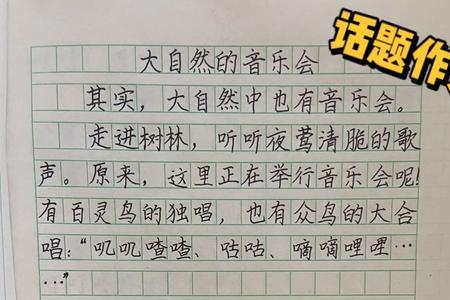 大自然的音乐会
话题作
其实，大自然中也有音乐会。
走进树林，听听夜莺清脆的歌
声。原来，这里正在举行音乐会呢!
有百灵鸟的独唱，也有众鸟的大合
唱：“叽叽喳喳、咕咕、嘀嘀哩哩…
…”